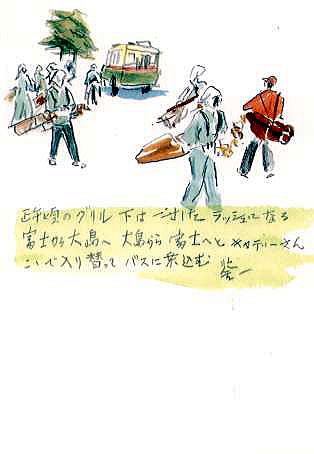 正午頃のグリル下は一寸したラッシュになる
富士から大島へ 大島から富士へと キャディーさん
入り替って バスに乗込む